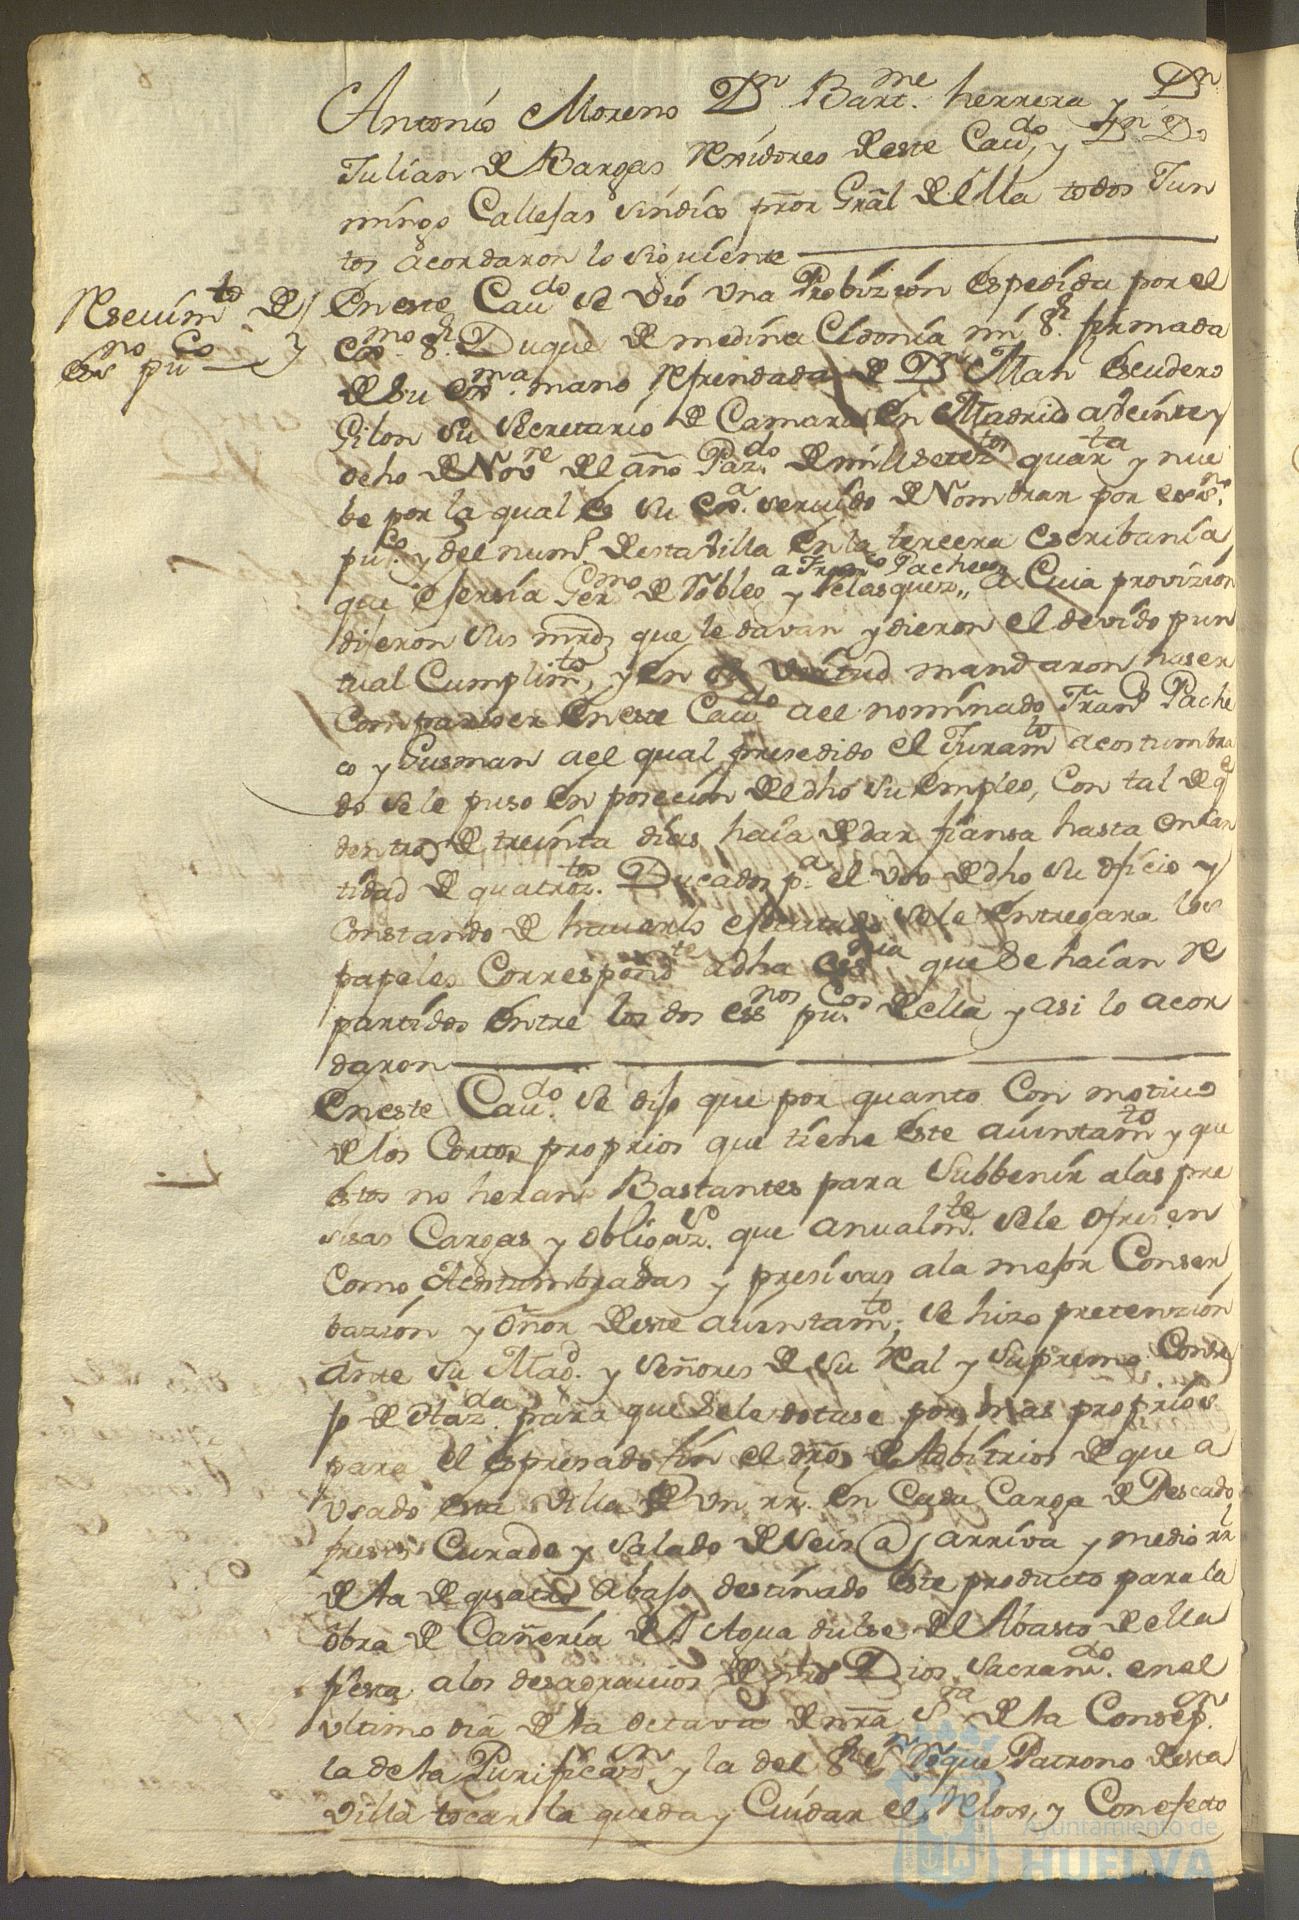 Antonio Moreno Dn Bartme herrera y Dn
Julian de Bargas Rexidores deste Caudo, y Dn Do
mingo Callejas sindico pror Gral de ella todos Jun
tos acordaron lo siguiente
Reseuimto de
essno puco
En este Caudo se vió una Probizion espedida por el
Exmo. Sr. Duque de medina Cidonia mi Sr. firmada
de su Exma. mano refrendada de Dn Man Escudero
Gilon su Secretario de Camara en Madrid a veinte y
ocho de Novre del año Pazdo. de mill seteztos quarta y nue
be por la qual es su Exa. seruido de Nombrar por essno.
puco. y del numo desta Villa en la tercera escribanía
que ejersía Germo de Robles y Velasquez,, a Franco Pacheco a Cuia provizion
dijeron sus mrds que le davan y dieron el devido pun
tual Cumplimto, y en su virtud mandaron haser
Comparecer en este Caudo a el nominado Franco Pache
co y Gusman a el qual presedido el Juramto acostumbra
do se le puso en posecion de dho su empleo, Con tal de qe
dentro de treinta dias haia de dar fiansa hasta en can
tidad de quatroztos. Ducados pa. el uso de dho su oficio y
Constando de hauerlo ejecutado se le entregara los
papeles Correspondte a dha essnia que se haían re
partidos entre los dos essnos pucos. de ella y asi lo acor
daron
En este Caudo. se dijo que por quanto Con motiuo
de los Cortos proprios que tiene este auintamto y que
estos no heran Bastantes para Subbenir a las pre
sisas Cargas y obligazs. que anualmte. se le ofresen
Como Acostumbradas y presisas a la mejor Conser
bazion y onor deste auintamto; se hizo pretenzion
Ante su Magd. y señores de su Real y Supremo Conse
jo de Hazda. para que se le dotase por mas proprios
para el espresado fin el dro de Adbitrios de que a
usado esta Villa de un rrl. en Cada Carga de Pescado
fresco Curado y salado de seis @ arriva y medio rrl
de la de quatro abajo destinado este producto para la
obra de Cañería de el Agua dulse del Abasto de ella
fiesta a los desagrauios de ntro Dios Sacramdo. en el
ultimo dia de la octava de nra Sra de la Consepon.
la de la Purificazn y la del Sr Sn Roque Patrono desta
Villa tocar la queda y Cuidar el Relox, y Con efecto
Ayuntamiento de
HUELVA